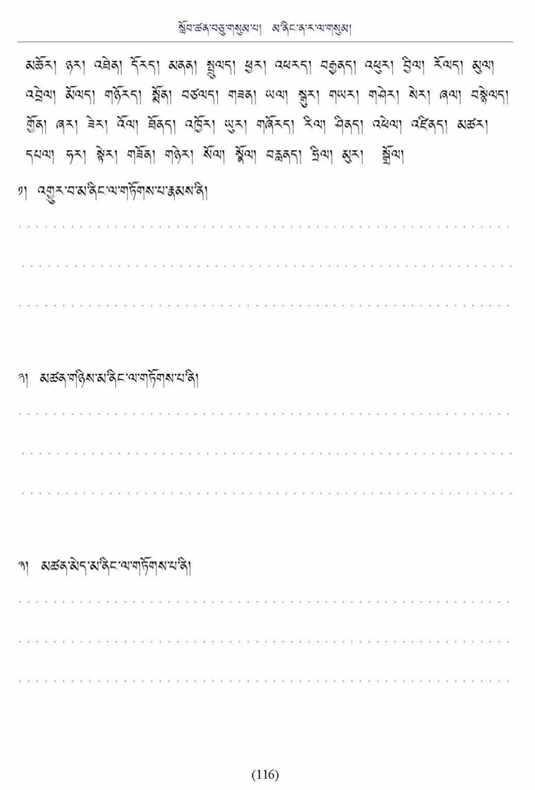 སློབ་ཚན་བཅུ་གསུམ་པ།   མ་ནིང་ན་ར་ལ་གསུམ།
མཆོར། ཉར། འཐེན། དོརད། མནན། སྤྲུལད། ཕྱར། འཕརད། བརྒྱནད། འཕུར། ཁྲིལ། རོལད། མུལ།
འབྲེལ། མོལད། གཉོརད། སྨོན། བཙལད། གཟན། ཡལ། སྐུར། གཡར། གཤེར། སེར། ཞལ། བསྙེལད།
གྱོན། ཞར། ཟེར། འོལ། ཐོནད། འཁྱོར། ཡུར། གཞོརད། རིལ། ཤིནད། འཕེལ། འཛིནད། མཚར།
དཔལ། ཧར། སྟེར། གཟོན། གཉེར། སོལ། སྣོལ། བརླནད། ཧྲིལ། མུར། སྒྲོལ།
༡། འགྱུར་བ་མ་ནིང་ལ་གཏོགས་པ་རྣམས་ནི།
༢། མཚན་གཉིས་མ་ནིང་ལ་གཏོགས་པ་ནི།
༣། མཚན་མེད་མ་ནིང་ལ་གཏོགས་པ་ནི།
(116)